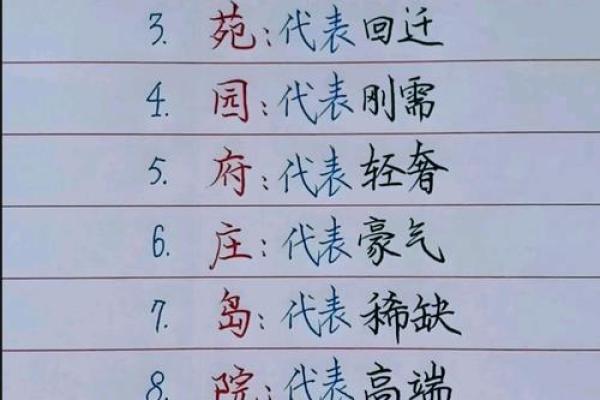 3. 苑:代表回迁
4. 园:代表刚需
5. 府:代表轻奢
6. 庄:代表豪气
7. 岛:代表稀缺
8. 院:代表高端